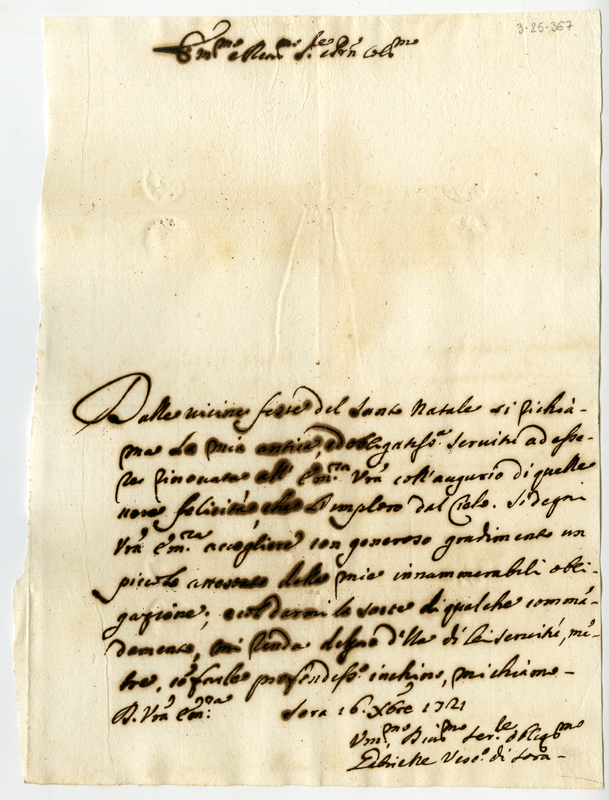 3-25-367
Em.mo e Rev.mo S.re e Pron Col.mo
Dalle vicine feste del Santo Natale si richia-
ma la mia antica, ed obligatiss.a servitù ad esse-
re rinovata all' Em.za V.ra coll'augurio di quelle
vere felicità, che l'imploro dal Cielo. Si degni
V.ra Em.za accogliere con generoso gradimento un
piccolo attestato delle mie innumerabili obli-
gazione, e col darmi la sorte di qualche comman-
damento, mi renda degno della di lei servitù, men-
tre, con farle profondiss.o inchino, mi chiamo-
D. V.ra Em.za Sora 16. Xbre 1721
Um.mo Div.mo ser.re oblig.mo
Gabriele Vesc.o di Sora-